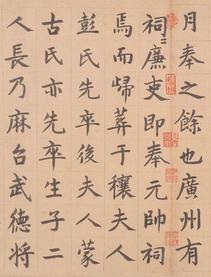 月奉之餘也廣州有
祠〻廉吏即奉元帥祠
焉而歸葬于穰夫人
彭氏先卒後夫人蒙
古氏亦先卒生子二
人長乃麻台武德將